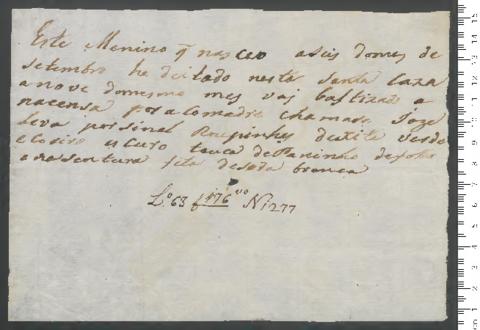 Este Menino q̃ nasceo a seis do mes de
setembro he deitado nesta Santa Caza
a nove do mesmo mes vaj baltizado a
nacensa por a comadre chamase Joze
leva por sinal Roupinha de xite verde
e Coeiro escuro touca de Paninho
fita de seda branca
L.º 63 f 176 N 1277